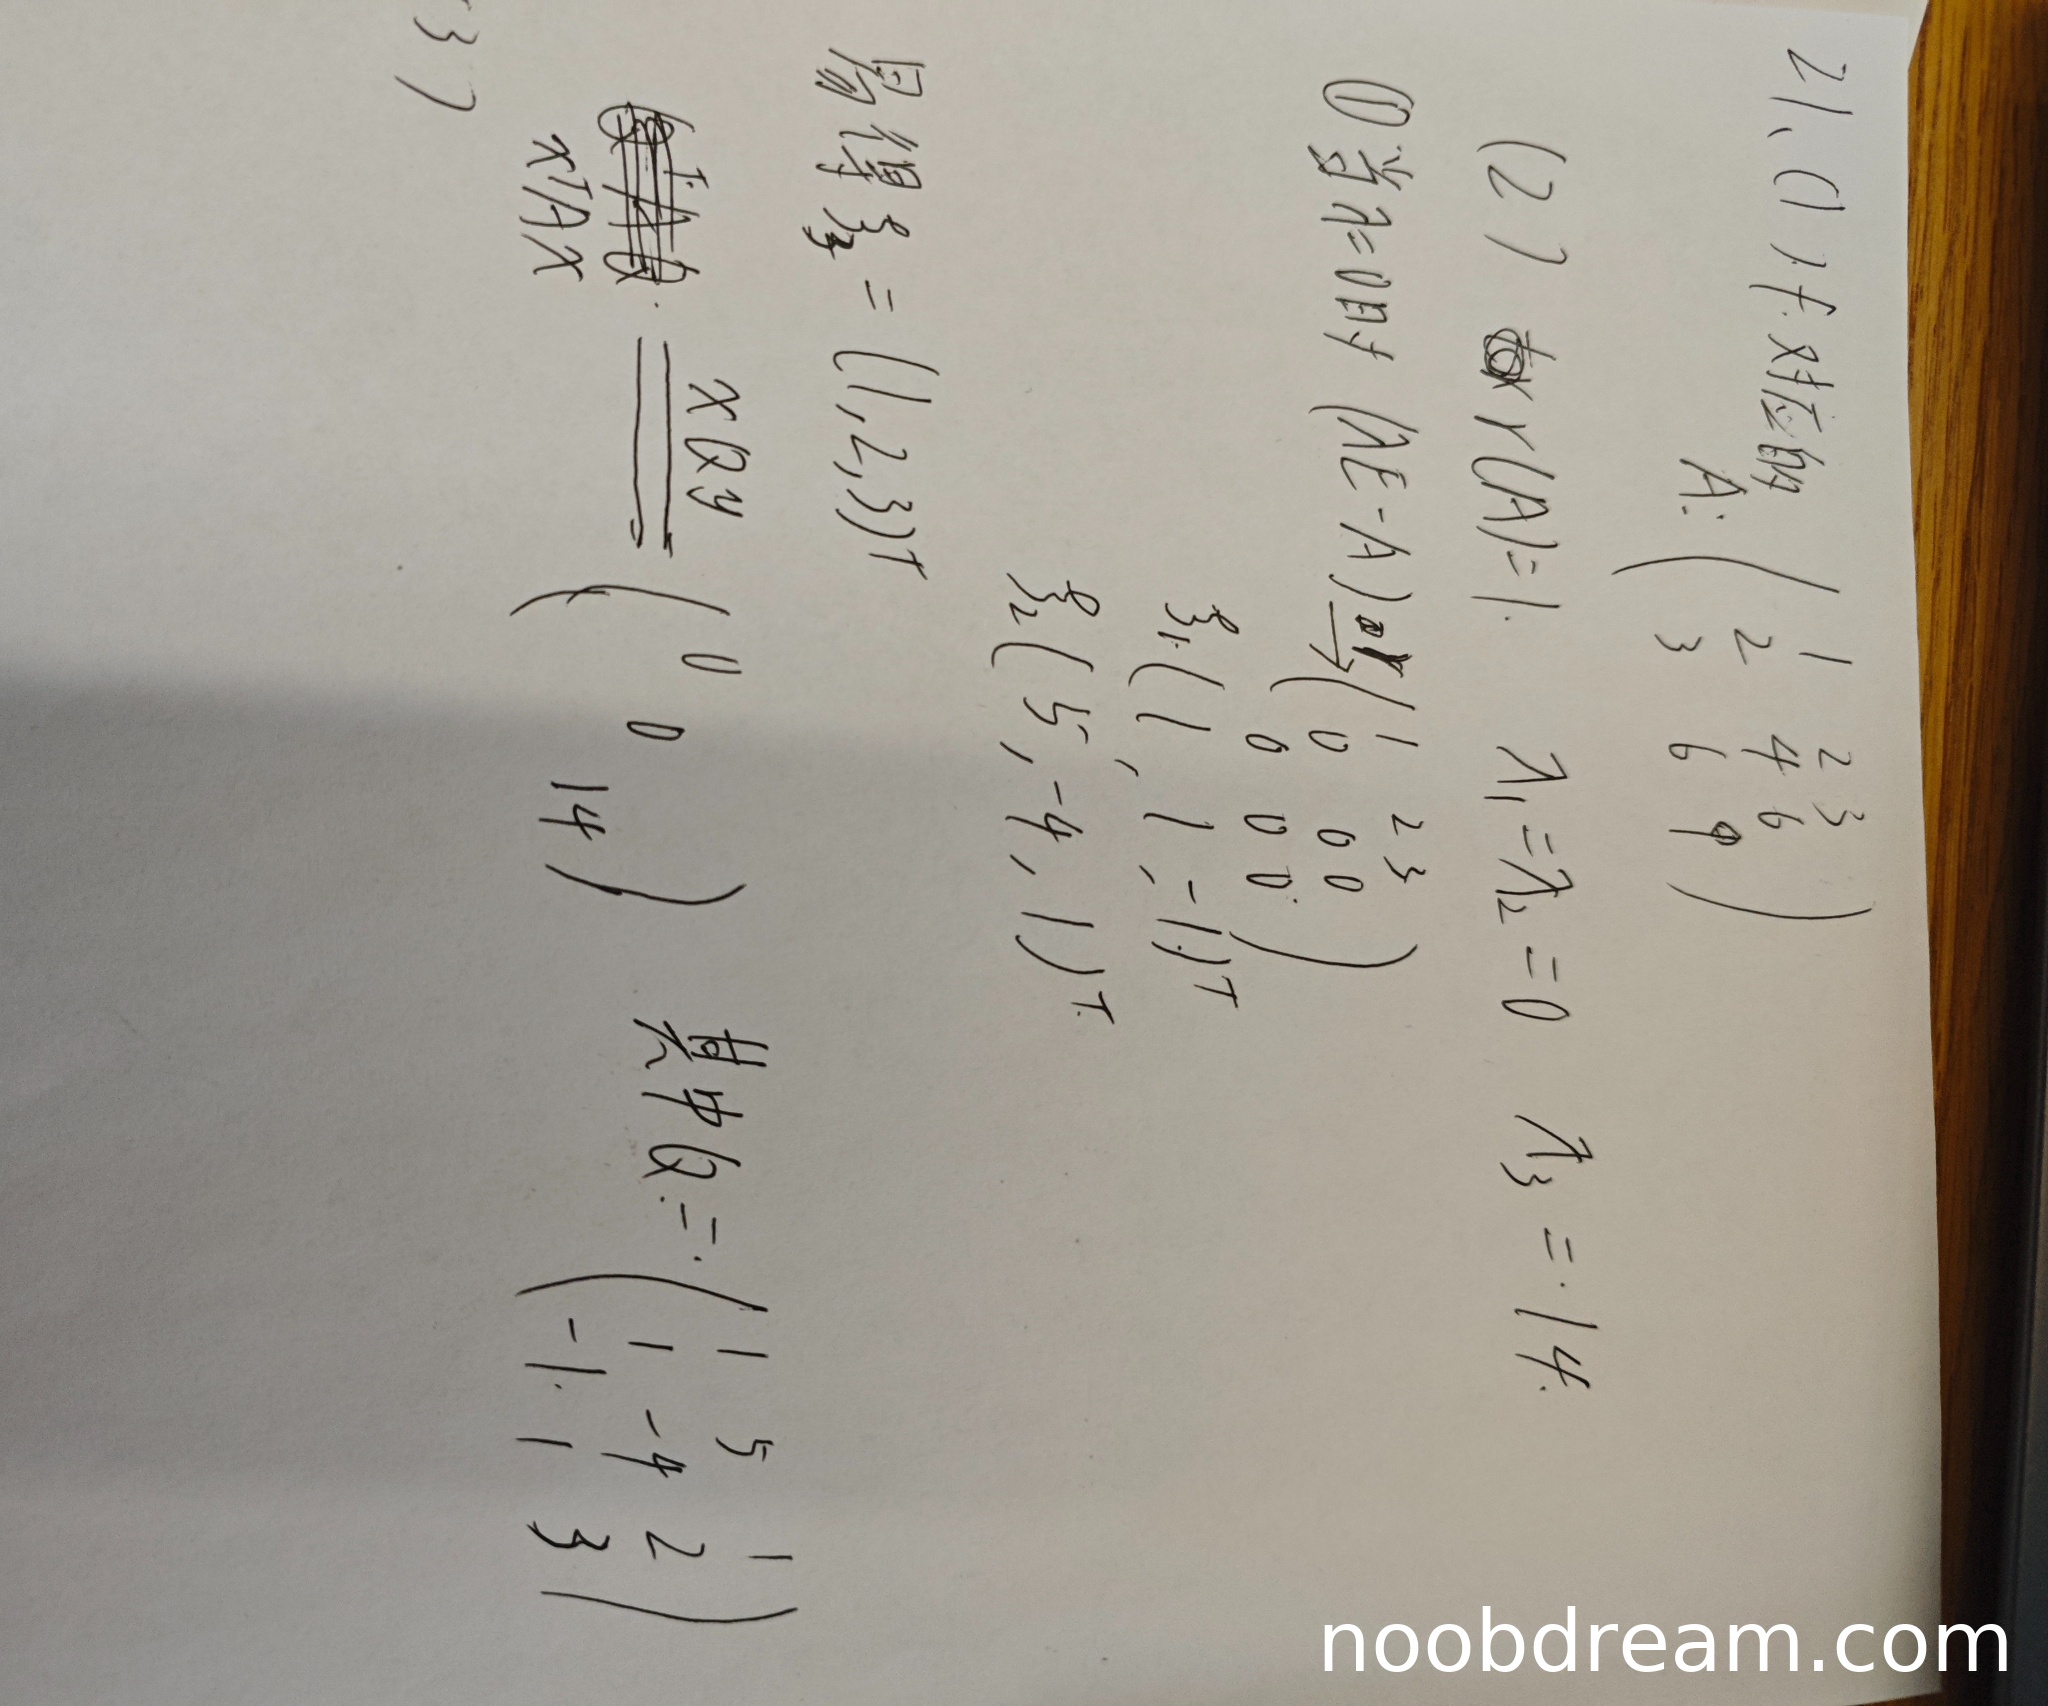 21、(1) f 对应的
A: ( 1 2 3
2 4 6
3 6 9 )
(2) r(A)=1. λ1=λ2=0 λ3=14.
① 当λ=0时 (λE-A) r→ ( 1 2 3
0 0 0
0 0 0 )
ξ1 (1, 1, -1)T
ξ2 (5, -4, 1)T
易得 ξ3 = (1, 2, 3)T
xTAx ==x Q y== ( 0
0
14 ) 其中Q = ( 1 5 1
1 -4 2
-1 1 3 )
3)
noobdream.com